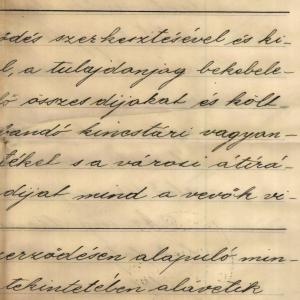 ődés szerkesztésével és ki-
l, a tulajdonjog bekebele-
ő összes dijakat és költ
andó kincstári vagyon-
tékel s a városi átirá-
dijat mind a vevők vi-
erződésen alapuló min-
tekintetében alávetek